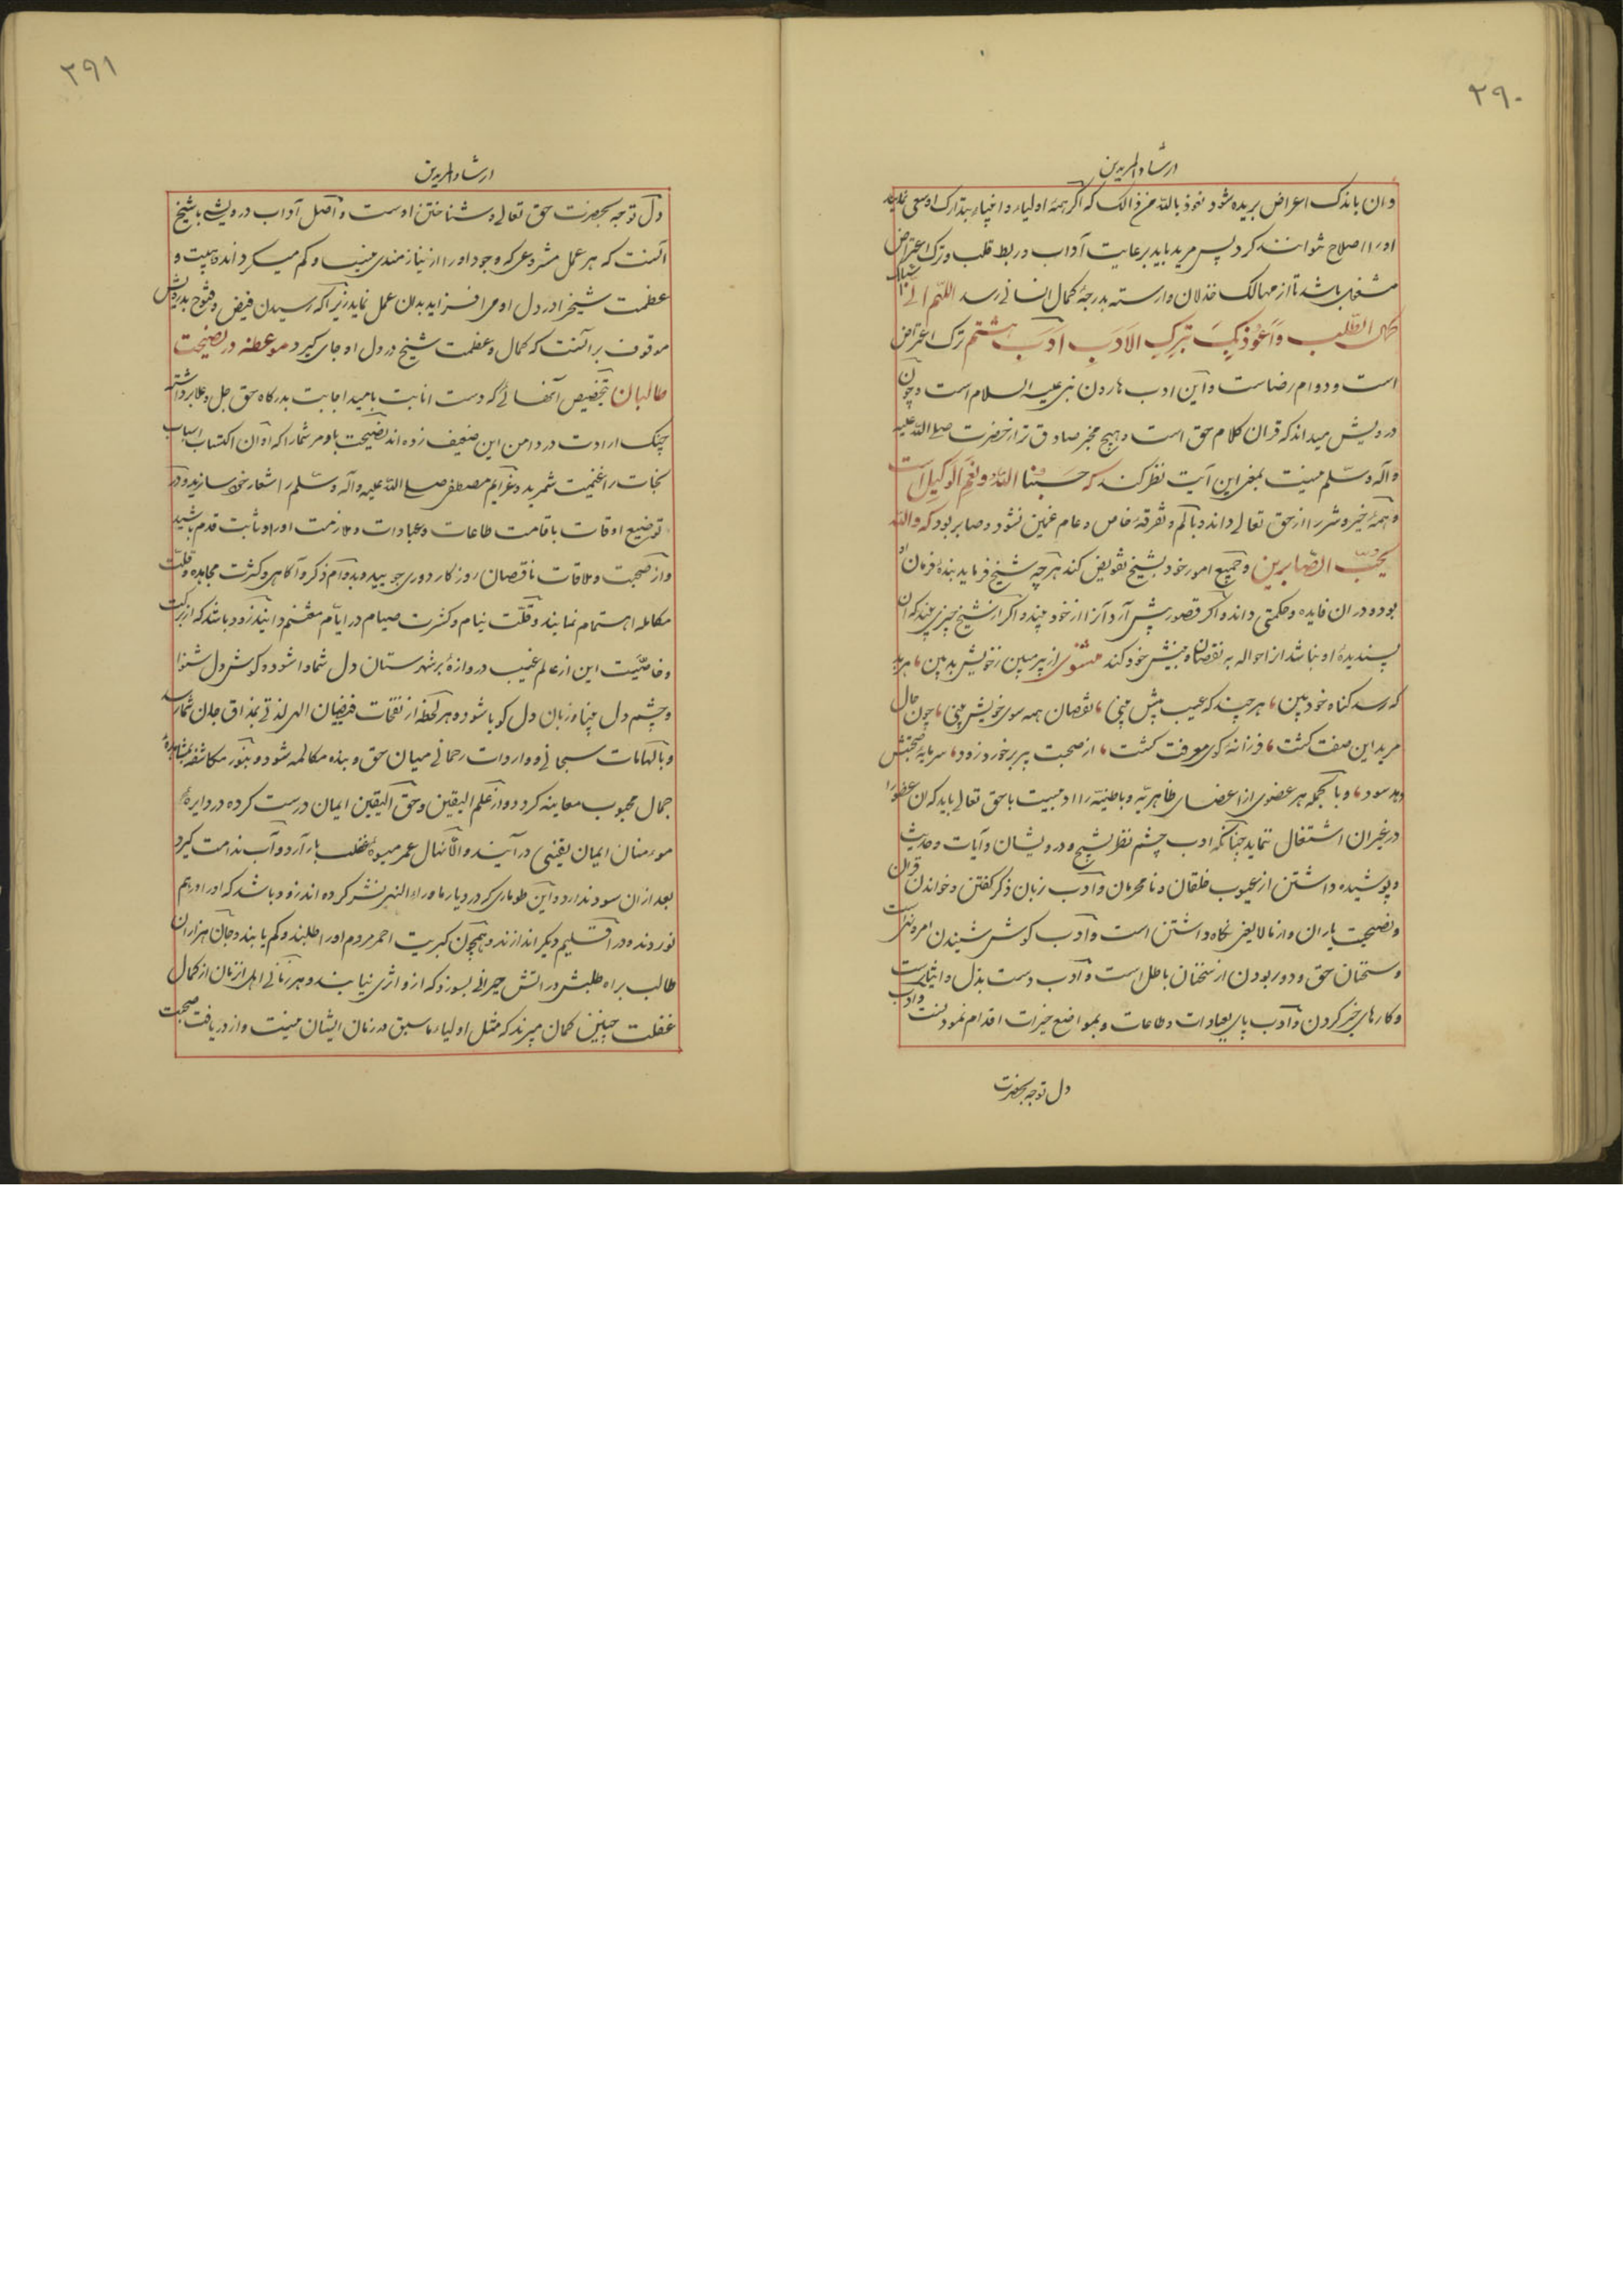 ۲۹۰
ارشاد المریدین
و ان باندک اعراض بریده شود نعوذ بالله من ذالک که اگر همهٔ اولیاء و اخیار بتدارک او سعی نمایند
او را اصلاح نتوانند کرد پس مرید باید برعایت آداب در بط قلب و ترک اعتراض
مشغول باشد تا از مهالک خذلان وارسته بدرجهٔ کمال انسانی رسد اللهم انی اسئلک
کمال الطلب و اعوذ بک بترک الادب ادب هشتم ترک اعتراض
است و دوام رضاست و این ادب هارون نبی علیه السلام است و چون
درویش میداند که قران کلام حق است و هیچ مخبر صادق تر از حضرت صلی الله علیه
و آله و سلم نیست بمعنی این آیت نظر کند که حسبنا الله و نعم الوکیل است
و همهٔ خیر و شر را از حق تعالی داند و باکم و تفرقهٔ خاص و عام غمین نشود و صابر بود که والله
یحب الصابرین و جمیع امور خود بشیخ تفویض کند هر چه شیخ فرماید بنده فرمان او
بوده در ان فایده و حکمتی داند و اگر قصور پیش آرد آنرا از خود بیند و اگر از شیخ چیزی بیند که آن
پسندیدهٔ او نباشد از احواله به نقصان بینش خود کند مثنوی از پیر مبین ز خویش بد بین، هر بد
که رسد کناه خود بین، هر چند که عیب پیش بینی، نقصان همه سوی خویش بینی، چون حال
مرید این صفت کشت، فرزانهٔ کوی معرفت کشت، از صحبت پیر برخورد زود، سرمایه صحبتش
دهد سود، و بالجمله هر عضوی از اعضای ظاهریه و باطنیه را ادبیست با حق تعالی باید که آن عضو را
در غیر ان اشتغال ننماید چنانکه ادب چشم نظر بشیخ و درویشان و آیات و حدیث
و پوشیده داشتن از عیوب خلقان و نامحرمان و ادب زبان ذکر کفتن و خواندن قران
و نصیحت یاران و از مالایعنی نگاه داشتن است و ادب کوش شنیدن امر و نهی است
و سخنان حق و دور بودن از سخنان باطل است و ادب دست بذل و ایثار است
و کارهای خیر کردن و ادب پای بعبادات و طاعات و بمواضع خیرات اقدام نمودنست و ادب
دل توجه بحضرت
۲۹۱
ارشاد المریدین
دل توجه بحضرت حق تعالی و شناختن اوست و اصل آداب درویشی با شیخ
آنست که هر عمل مشروعی که وجود او را از نیازمندی می‌نماید و کم میکرداند و هیبت و
عظمت شیخ را در دل او می افزاید بدان عمل نماید زیرا که رسیدن فیض و فتوح بدرویش
موقوف بر آنست که کمال و عظمت شیخ در دل او جای کیرد موعظه در نصیحت
طالبان بتخصیص آنهائی که دست انابت بامید اجابت بدرکاه حق جل و علا برداشته
چنک ارادت در دامن این ضعیف زده اند نصیحت باد مر شما را که اوان اکتساب اسباب
نجات را غنیمت شمرید و عزایم مصطفی صلی الله علیه و آله و سلم را شعار خود سازید و در
توضیع اوقات باقامت طاعات و عبادات و ملازمت اوراد ثابت قدم باشید
و از صحبت و ملاقات ناقصان روزکار دوری جویید و بدوام ذکر و آکاهی و کثرت مجاهده و قلت
مکامله اهتمام نمایند و قلت نیام و کثرت صیام در ایام مغتنم دانید زود باشد که از برکت
و خاصیت این از عالم غیب دروازهٔ بر شهرستان دل شما وا شود و کوش دل شنوا
و چشم دل بینا و زبان دل کویا شود و هر لحظه از نفحات فیضان الهی لذتی بمذاق جان شما رسد
و بالهامات سبحانی و واردات رحمانی میان حق و بنده مکالمه شود و بنور مکاشفه بمشاهدهٔ
جمال محبوب معاینه کردد و از علم الیقین و حق الیقین ایمان درست کرده در دایرهٔ
مومنان ایمان یقینی در آیند و الا نهال عمر میوهٔ غفلت بار آرد و آب ندامت کیرد
بعد ازان سود ندارد و این طوماری که در دیار ماوراء النهر نشر کرده اند زود باشد که او را در هم
نوردند و در اقلیم دیکر اندازند و همچون کبریت احمر مردم او را طلبند و کم یابند و جان هزاران
طالب براه طلبش در اتش حیرانی بسوزد که از و اثری نیابند و هر زمانی اهل آن زمان از کمال
غفلت چنین کمان میبرند که مثل اولیاء ما سبق در زمان ایشان نیست و از دریافت صحبت